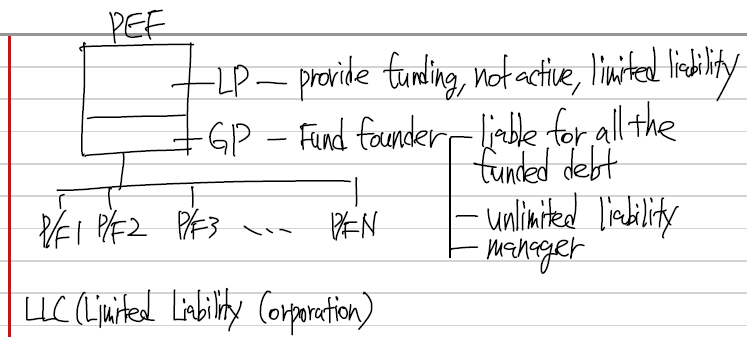 PEF
LP — provide funding, not active, limited liability
GP — Fund founder — liable for all the
funded debt
— unlimited liability
— manager
P/F1 P/F2 P/F3 ... P/FN
LLC (Limited Liability Corporation)